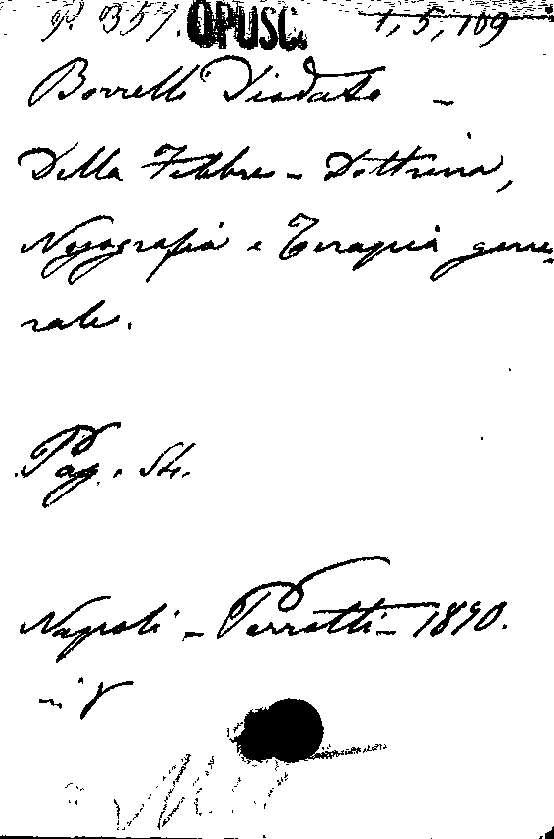 P. 357. OPUSC. 1, 5, 109
Borrelli Diodato -
Della Febbre - Dottrina,
Nosografia e Terapia gene-
rale.
Pag. 54.
Napoli - Perrotti - 1890.
in 8